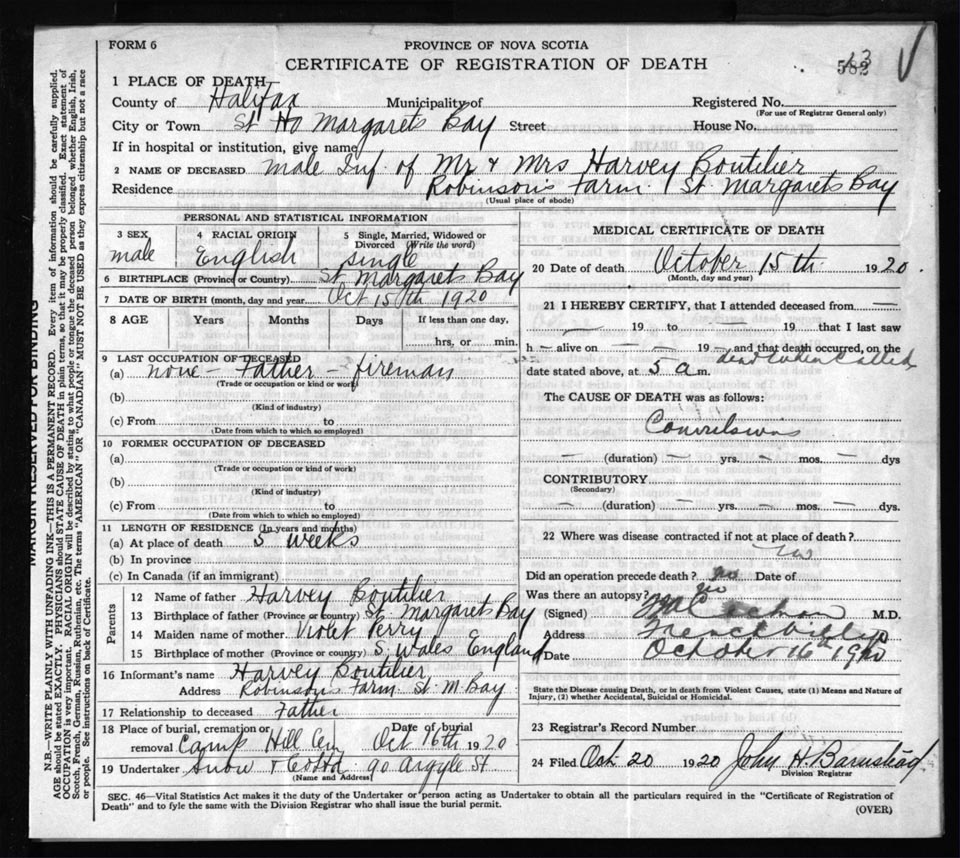 FORM 6
PROVINCE OF NOVA SCOTIA
CERTIFICATE OF REGISTRATION OF DEATH
582
13
1 PLACE OF DEATH
County of Halifax Municipality of
Registered No.
(For use of Registrar General only)
City or Town St Margarets Bay Street House No.
If in hospital or institution, give name
2 NAME OF DECEASED male Inf. of Mr & Mrs Harvey Boutilier
Residence Robinson's Farm St Margarets Bay
(Usual place of abode)
PERSONAL AND STATISTICAL INFORMATION
3 SEX male
4 RACIAL ORIGIN English
5 Single, Married, Widowed or Divorced (Write the word) single
6 BIRTHPLACE (Province or Country) St Margarets Bay
7 DATE OF BIRTH (month, day and year Oct 15th 1920
8 AGE Years Months Days If less than one day,
hrs, or min.
9 LAST OCCUPATION OF DECEASED
(a) none - Father - fireman
(Trade or occupation or kind or work)
(b)
(Kind of industry)
(c) From to
(Date from which to which so employed)
10 FORMER OCCUPATION OF DECEASED
(a)
(Trade or occupation or kind of work)
(b)
(Kind of industry)
(c) From to
(Date from which to which so employed)
11 LENGTH OF RESIDENCE (In years and months)
(a) At place of death 5 weeks
(b) In province
(c) In Canada (if an immigrant)
Parents
12 Name of father Harvey Boutilier
13 Birthplace of father (Province or country) St Margarets Bay
14 Maiden name of mother Violet Perry
15 Birthplace of mother (Province or country) S. Wales England
16 Informant's name Harvey Boutilier
Address Robinsons Farm St. M. Bay
17 Relationship to deceased Father
18 Place of burial, cremation or removal Camp Hill Cem
Date of burial Oct 16th 1920
19 Undertaker Snow & 90 Argyle St
(Name and Address)
MEDICAL CERTIFICATE OF DEATH
20 Date of death October 15th 1920.
(Month, day and year)
21 I HEREBY CERTIFY, that I attended deceased from —
— 19 to — 19 that I last saw
h — alive on — — 19 —, and that death occurred, on the
dead when called
date stated above, at 5 a m.
The CAUSE OF DEATH was as follows:
Convulsions
— (duration) — yrs. — mos. — dys
CONTRIBUTORY
(Secondary)
— (duration) — yrs. — mos. — dys.
22 Where was disease contracted if not at place of death?
Did an operation precede death? no Date of
Was there an autopsy? no
(Signed) M.D.
Address
Date October 16th 1920
State the Disease causing Death, or in death from Violent Causes, state (1) Means and Nature of
Injury, (2) whether Accidental, Suicidal or Homicidal.
23 Registrar's Record Number
24 Filed Oct. 20 1920 John H. Barnstead
Division Registrar
SEC. 46—Vital Statistics Act makes it the duty of the Undertaker or person acting as Undertaker to obtain all the particulars required in the "Certificate of Registration of
Death" and to fyle the same with the Division Registrar who shall issue the burial permit.
(OVER)
MARGIN RESERVED FOR BINDING
N.B.—WRITE PLAINLY WITH UNFADING INK—THIS IS A PERMANENT RECORD. Every item of information should be carefully supplied.
AGE should be stated EXACTLY. PHYSICIANS should STATE CAUSE OF DEATH in plain terms, so that it may be properly classified. Exact statement of
OCCUPATION is very important. RACIAL ORIGIN will be described by stating to what people or tongue the deceased person belonged whether English, Irish,
Scotch, French, German, Russian, Ruthenian, etc. The terms "AMERICAN" OR "CANADIAN" MUST NOT BE USED as they express citizenship but not a race
or people. See instructions on back of Certificate.